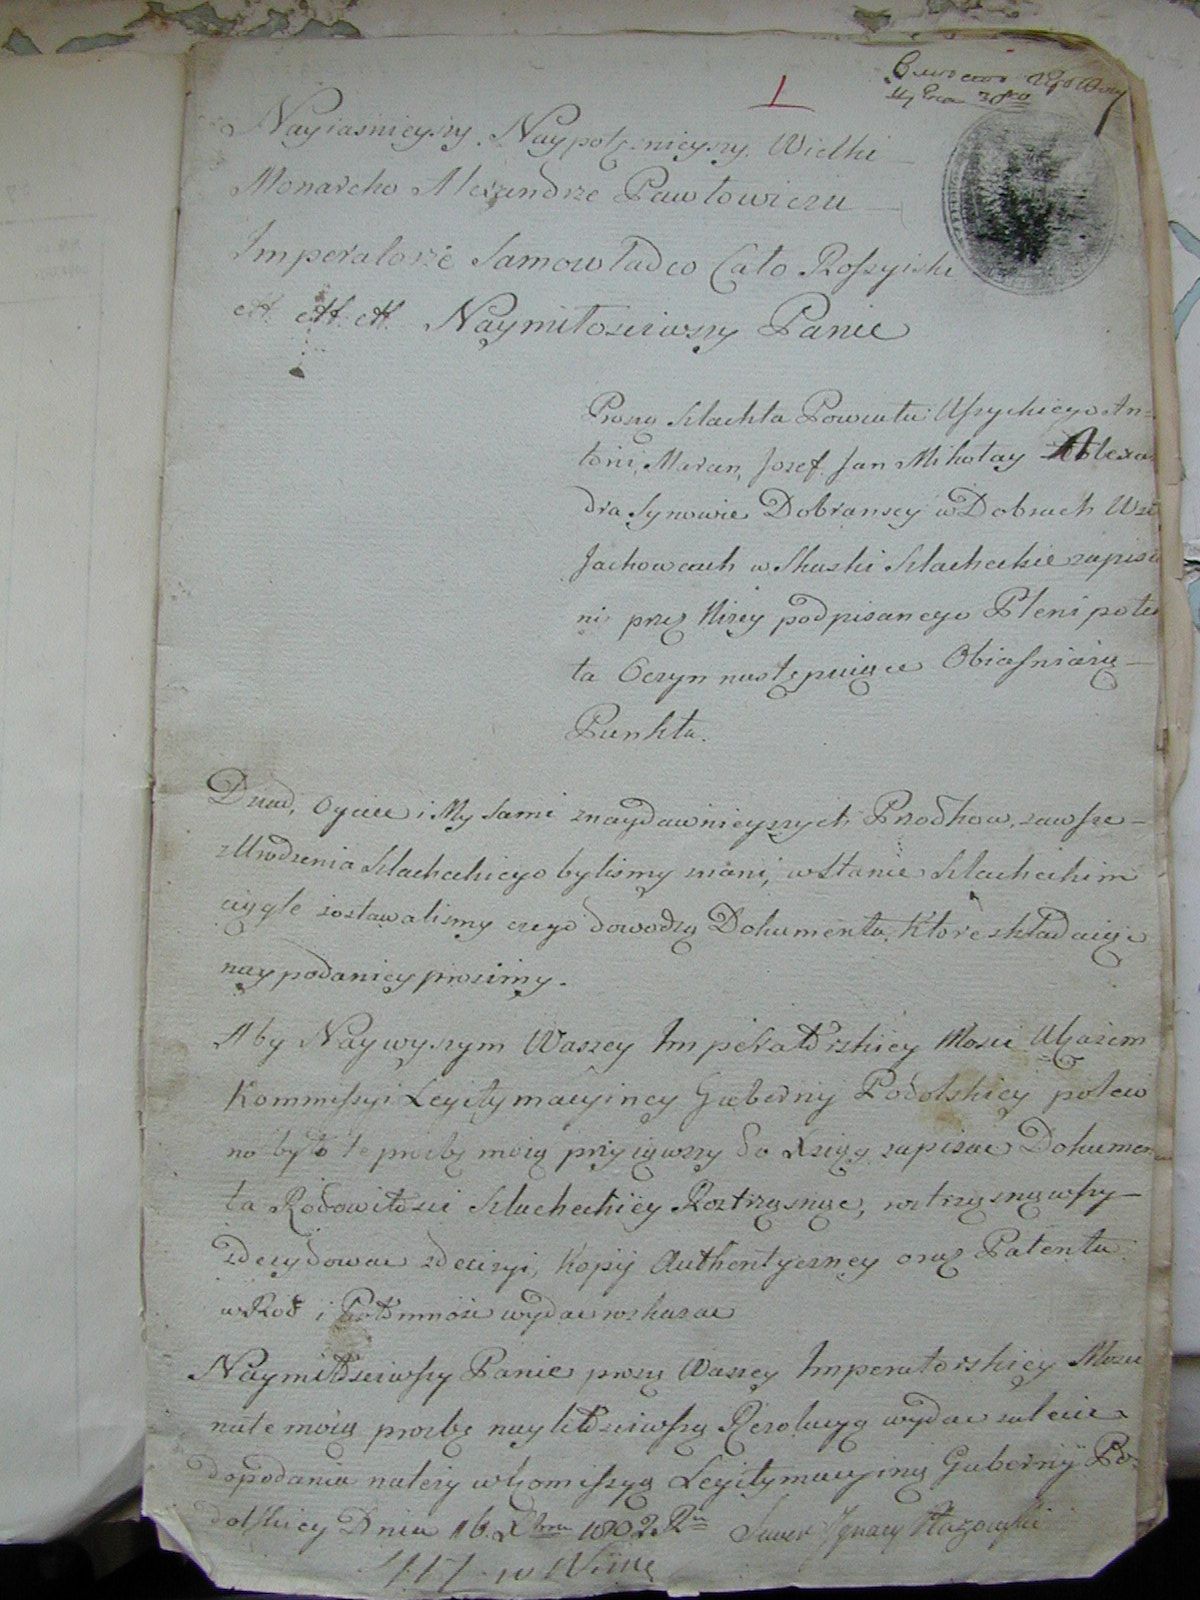 1
Nayiasnieyszy Naypotęznieyszy Wielki
Monarcho Alexandrze Pawłowiczu
Imperatorze Samowładco Cało Rossyiski
ett. ett. ett. Naymiłosciwszy Panie
Proszą Szlachta Powiatu Uszyckiego An=
toni, Marcin, Jozef, Jan Mikołay Alexan
dra Synowie Dobranscy w Dobrach Wsi
Jachowcach w Skaski Szlacheckie zapisa
ni przez Nizey podpisanego Plenipoten
ta Oczym nastęmpuiące Obiasniaią
Punkta.
Dziad, Oyciec i My Sami znaydawnieyszych Przodkow, zawsze
z Urodzenia Szlacheckiego bylismy znani, w Stanie Szlacheckim
ciągle zostawalismy czego dowodzą Dokumenta, Ktore składaiąc
naypodaniey prosimy.
Aby Naywyszym Waszey Imperatorskiey Mosci Ukazem
Kommissyi Legitymacyiney Guberniy Podolskiey polewno
było te prozbę moią przyiąwszy do Xsiąg zapisac Dokumen
ta Rodowitosci Szlacheckiey Roztrząsnąc, roztrząsnąwszy
zdecydowac zdecizyi, Kopiy Authentyczney oraz Patenta
w Rod i Potomnosc wydac rozkazac
Naymiłosciwszy Panie proszą Waszey Imperatorskiey Mosci
na te moią prozbę naylitosciwszą Rezolucyą wydac zalecic
do podania nalezy w Komissyą Legitymacyiną Guberniy Po=
dolskiey Dnia 16. Xbra 1802 Ru Ignacy